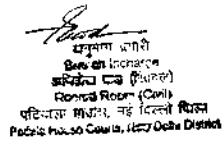 प्रभारी
Branch Incharge
अभिलेख कक्ष (सिविल)
Record Room (Civil)
पटियाला हाउस, नई दिल्ली जिला
Patiala House Courts, New Delhi District